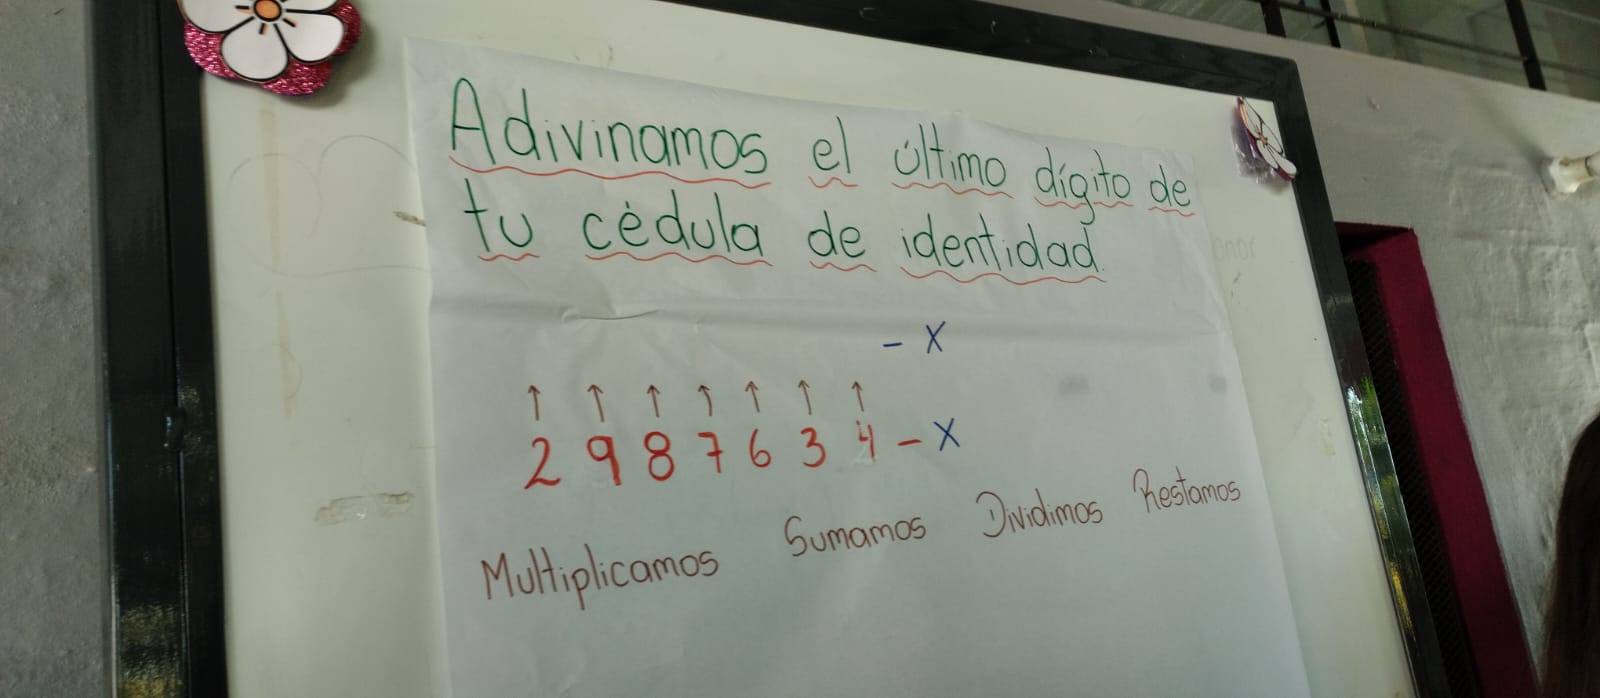 Adivinamos el último dígito de
tu cédula de identidad.
- X
↑ ↑ ↑ ↑ ↑ ↑ ↑
2 9 8 7 6 3 4 - X
Multiplicamos Sumamos Dividimos Restamos